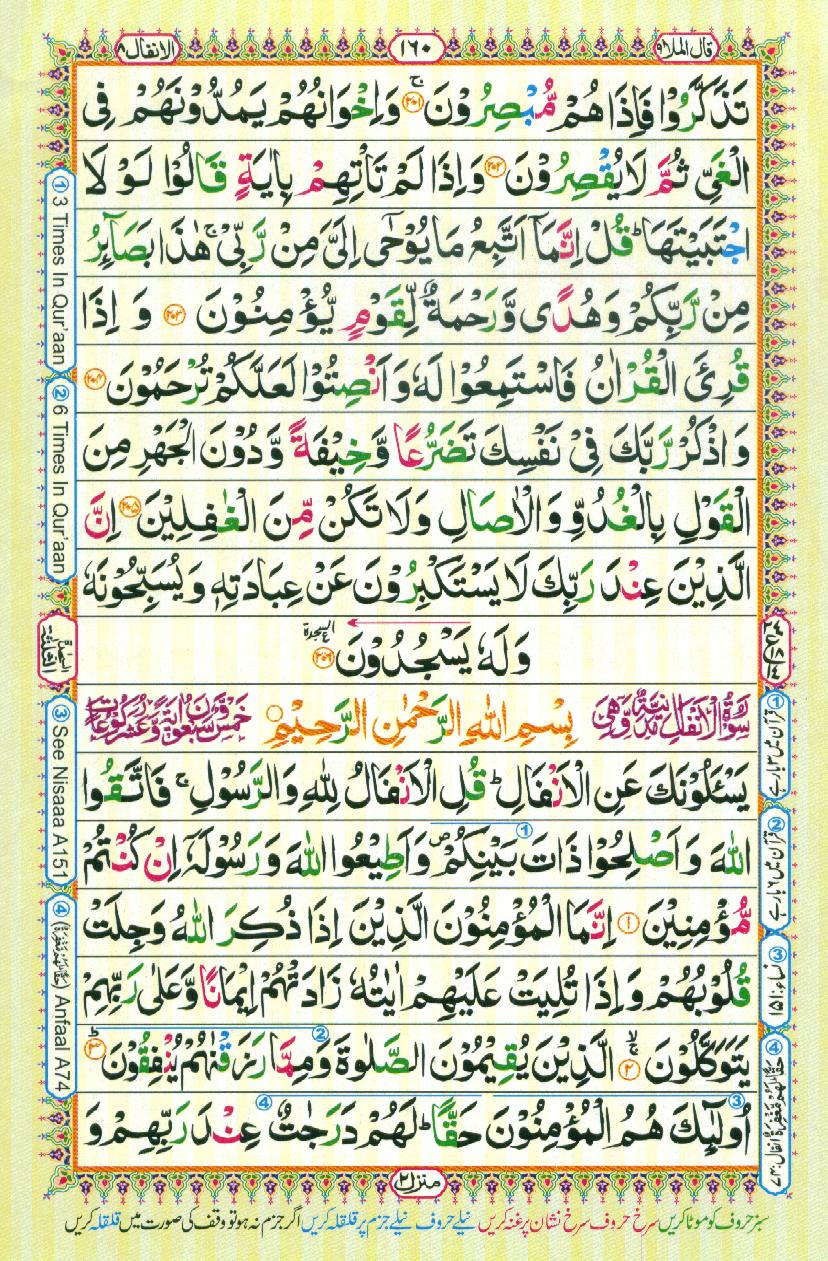 قال الملا ۹
۱۶۰
الانفال ۸
تَذَكَّرُوْا فَاِذَا هُمْ مُّبْصِرُوْنَ ﴿۲۰۱﴾ وَاِخْوَانُهُمْ يَمُدُّوْنَهُمْ فِى
الْغَىِّ ثُمَّ لَا يُقْصِرُوْنَ ﴿۲۰۲﴾ وَاِذَا لَمْ تَاْتِهِمْ بِاٰيَةٍ قَالُوْا لَوْ لَا
اجْتَبَيْتَهَا ؕ قُلْ اِنَّمَآ اَتَّبِعُ مَا يُوْحٰٓى اِلَىَّ مِنْ رَّبِّىْ ۚ هٰذَا بَصَآئِرُ
مِنْ رَّبِّكُمْ وَهُدًى وَّرَحْمَةٌ لِّقَوْمٍ يُّؤْمِنُوْنَ ﴿۲۰۳﴾ وَ اِذَا
قُرِئَ الْقُرْاٰنُ فَاسْتَمِعُوْا لَهٗ وَاَنْصِتُوْا لَعَلَّكُمْ تُرْحَمُوْنَ ﴿۲۰۴﴾
وَاذْكُرْ رَّبَّكَ فِىْ نَفْسِكَ تَضَرُّعًا وَّخِيْفَةً وَّدُوْنَ الْجَهْرِ مِنَ
الْقَوْلِ بِالْغُدُوِّ وَالْاٰصَالِ وَلَا تَكُنْ مِّنَ الْغٰفِلِيْنَ ﴿۲۰۵﴾ اِنَّ
الَّذِيْنَ عِنْدَ رَبِّكَ لَا يَسْتَكْبِرُوْنَ عَنْ عِبَادَتِهٖ وَيُسَبِّحُوْنَهٗ
وَلَهٗ يَسْجُدُوْنَ ﴿۲۰۶﴾ السجدة
سُوْرَةُ الْاَنْفَالِ مَدَنِيَّةٌ وَّهِىَ بِسْمِ اللّٰهِ الرَّحْمٰنِ الرَّحِيْمِ خَمْسٌ وَّسَبْعُوْنَ اٰيَةً وَّعَشْرُ رُكُوْعَاتٍ
يَسْـَٔلُوْنَكَ عَنِ الْاَنْفَالِ ؕ قُلِ الْاَنْفَالُ لِلّٰهِ وَالرَّسُوْلِ ۚ فَاتَّقُوا
اللّٰهَ وَاَصْلِحُوْا ذَاتَ بَيْنِكُمْ ۖ وَاَطِيْعُوا اللّٰهَ وَرَسُوْلَهٗۤ اِنْ كُنْتُمْ
مُّؤْمِنِيْنَ ﴿۱﴾ اِنَّمَا الْمُؤْمِنُوْنَ الَّذِيْنَ اِذَا ذُكِرَ اللّٰهُ وَجِلَتْ
قُلُوْبُهُمْ وَاِذَا تُلِيَتْ عَلَيْهِمْ اٰيٰتُهٗ زَادَتْهُمْ اِيْمَانًا وَّعَلٰى رَبِّهِمْ
يَتَوَكَّلُوْنَ ﴿۲﴾ الَّذِيْنَ يُقِيْمُوْنَ الصَّلٰوةَ وَمِمَّا رَزَقْنٰهُمْ يُنْفِقُوْنَ ﴿۳﴾
اُولٰٓئِكَ هُمُ الْمُؤْمِنُوْنَ حَقًّا ؕ لَهُمْ دَرَجٰتٌ عِنْدَ رَبِّهِمْ وَ
منزل ۲
① قرآن میں ۳ بار ہے
② قرآن میں ۶ بار ہے
③ نساء: ۱۵۱
④ حَقًّا لَهُمْ مَّغْفِرَةٌ انفال: ۷۴
① 3 Times In Qur'aan
② 6 Times In Qur'aan
③ See Nisaaa A151
④ (حَقًّا لَهُمْ مَّغْفِرَةٌ) Anfaal A74
سبز حروف کو موٹا کریں سرخ حروف سرخ نشان پر غنہ کریں نیلے حروف نیلے جزم پر قلقلہ کریں اگر جزم نہ ہو تو وقف کی صورت میں قلقلہ کریں